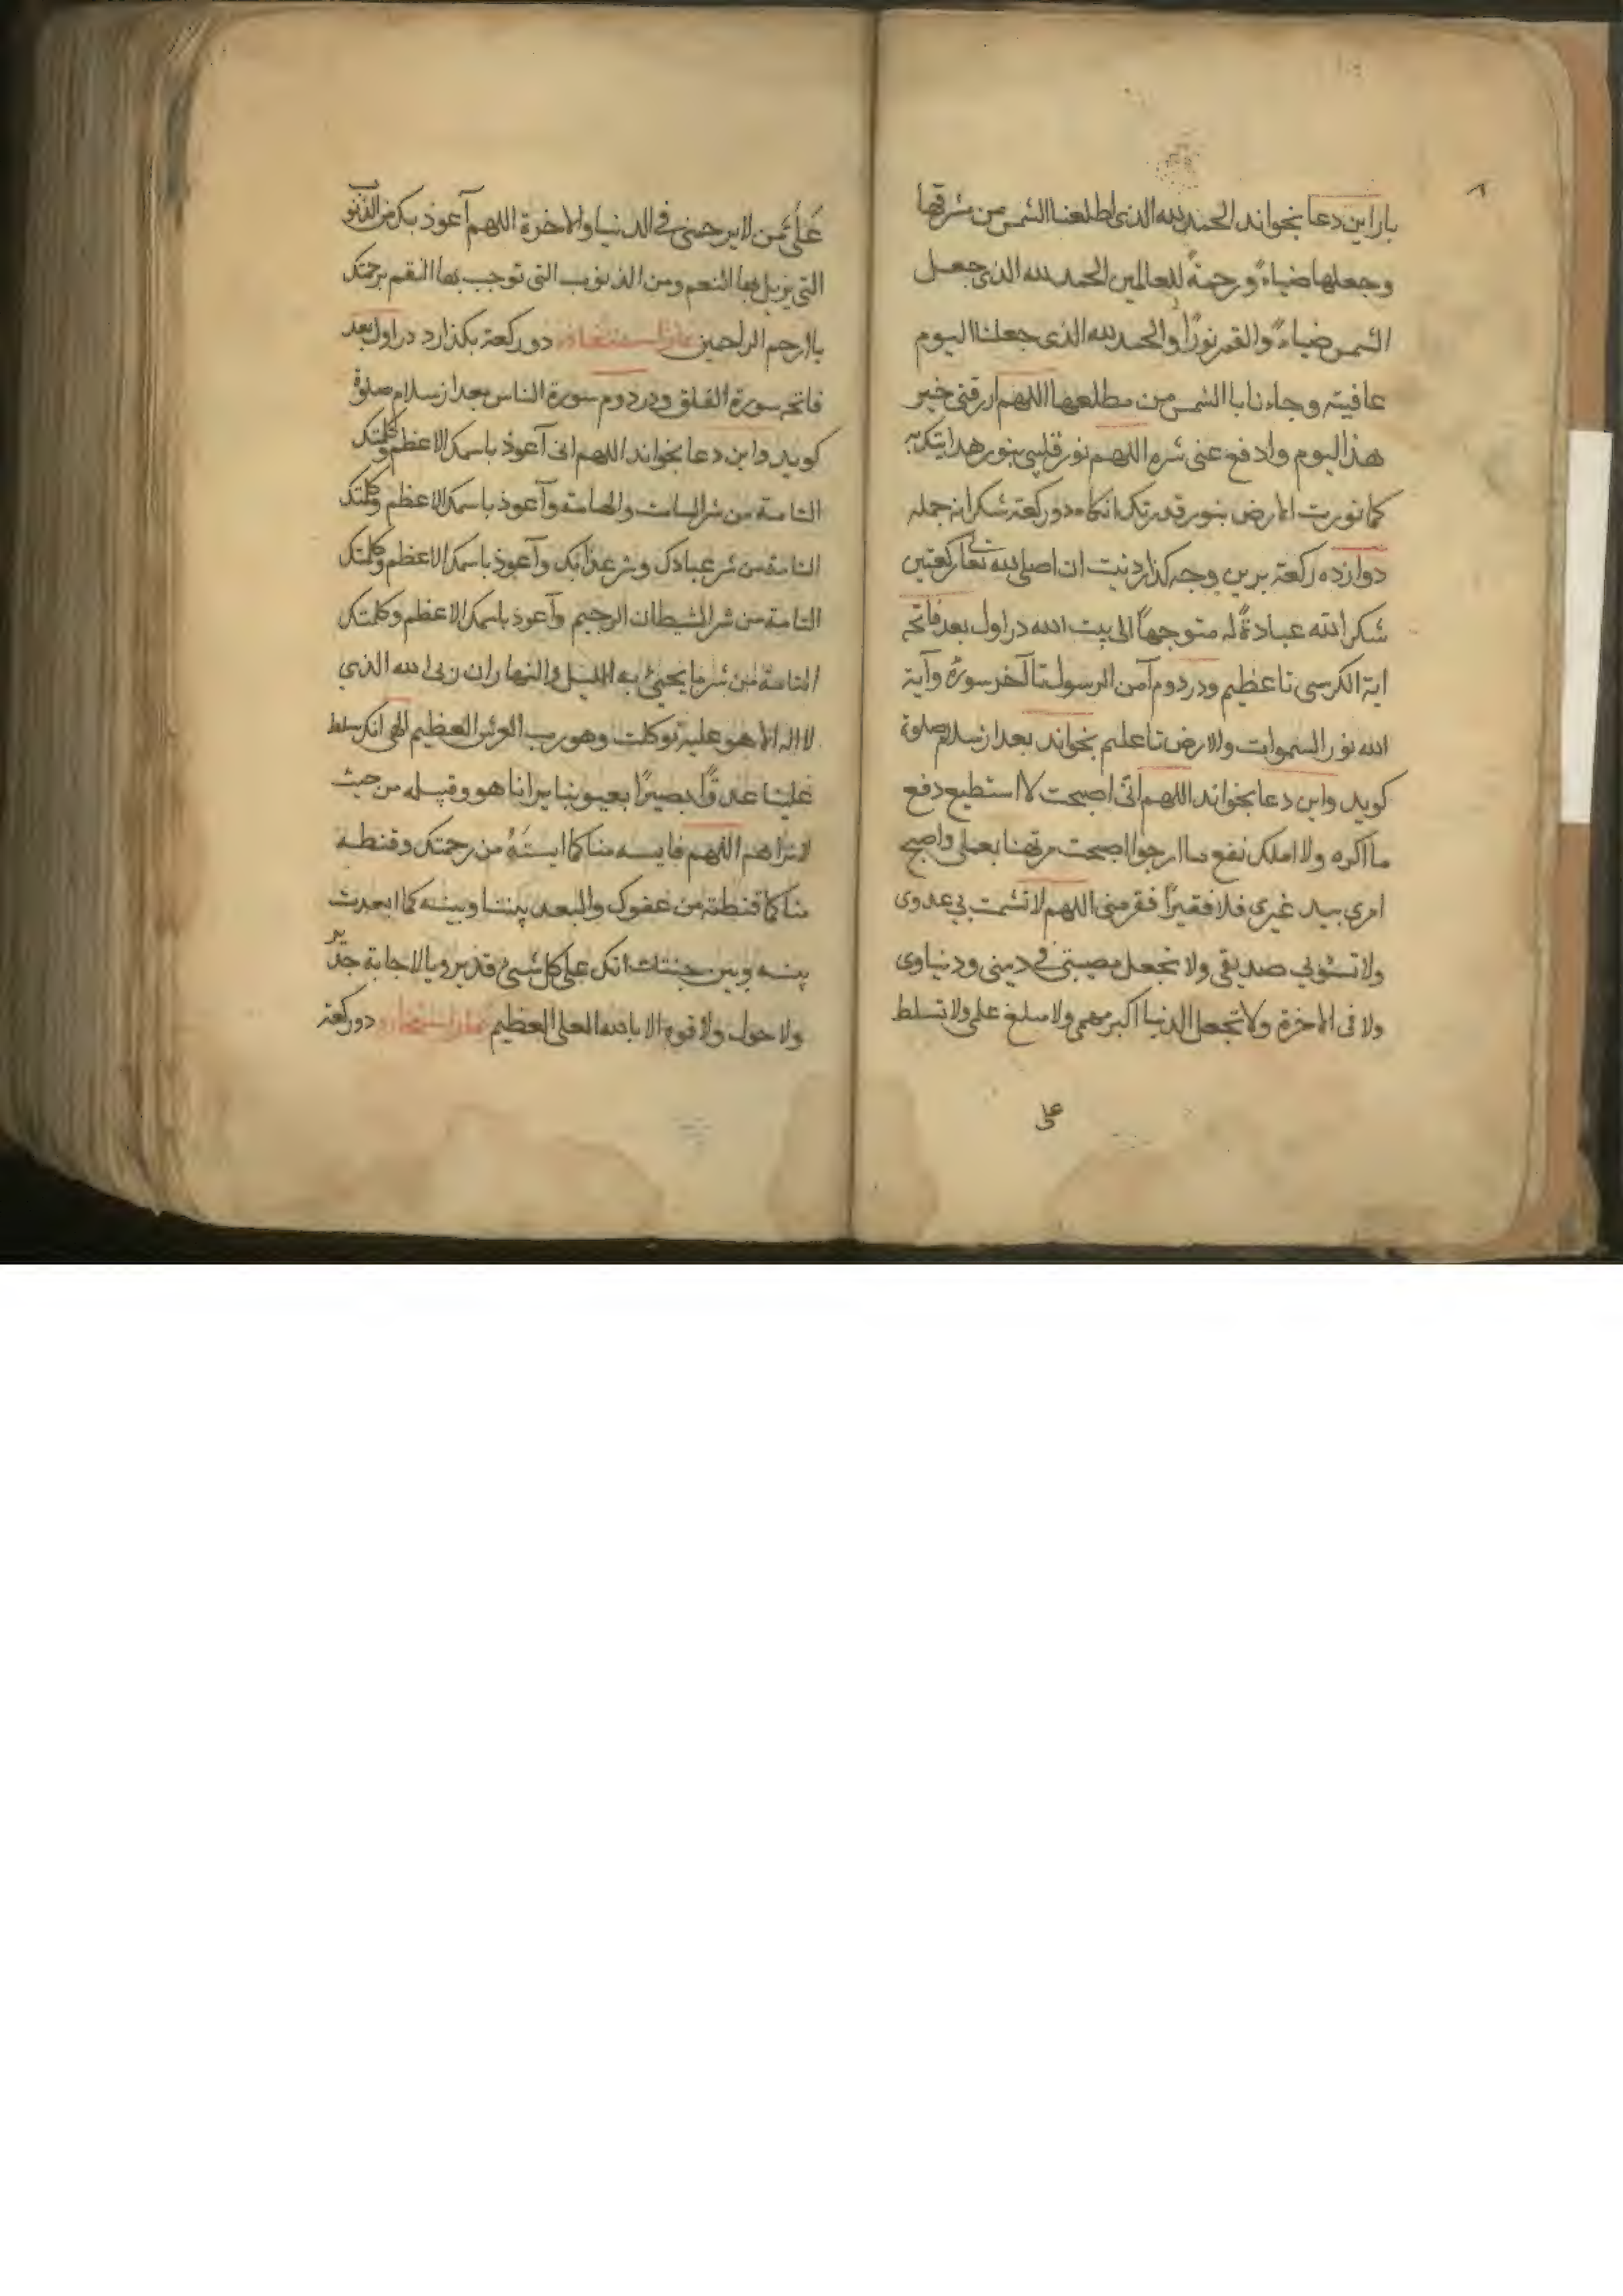 ٨
بار این دعا بخواند الحمد لله الذی اطلعنا الشمس من مشرقها
وجعلها ضیاءً ورحمةً للعالمین الحمد لله الذی جعل
الشمس ضیاءً والقمر نورًا والحمد لله الذی جعلنا الیوم
عافیته وجاءنا بالشمس من مطلعها اللهم ارزقنی خیر
هذا الیوم وادفع عنی شره اللهم نور قلبی بنور هدایتک
کما نورت الارض بنور قدرتک انکاه دو رکعة شکرانه جمله
دوازده رکعة برین وجه کذارد نیت ان اصلی لله تعالی رکعتین
شکرا لله عبادةً له متوجهاً الی بیت الله در اول بعد فاتحه
ایة الکرسی تا عظیم ودر دوم آمن الرسول تا آخر سورة وآیة
الله نور السموات والارض تا علیم بخواند بعد از سلام صلوة
کوید واین دعا بخواند اللهم انی اصبحت لا استطیع دفع
ما اکره ولا املک نفع ما ارجوا اصبحت مرتهنا بعملی واصبح
امری بید غیری فلا فقیرًا فقر منی اللهم لا تشمت بی عدوی
ولا تسؤ بی صدیقی ولا تجعل مصیبتی فی دینی ودنیاوی
ولا فی الاخرة ولا تجعل الدنیا اکبر همی ولا مبلغ علمی ولا تسلط
علی
عَلَیَّ مَن لا یرحمنی فی الدنیا والاخرة اللهم آعوذ بک من الذنوب
التی یزیل بها النعم ومن الذنوب التی توجب بها النقم برحمتک
یا ارحم الراحمین نماز استعاذه دو رکعة بکذارد در اول بعد
فاتحه سورة الفلق ودر دوم سورة الناس بعد از سلام صلوة
کوید واین دعا بخواند اللهم انی آعوذ باسمک الاعظم وکلمتک
التامة من شر السامة والهامة وآعوذ باسمک الاعظم وکلمتک
التامة من شر عبادک وشر عذابک وآعوذ باسمک الاعظم وکلمتک
التامة من شر الشیطان الرجیم وآعوذ باسمک الاعظم وکلمتک
التامة من شر ما یجیئ به اللیل والنهار ان ربی الله الذی
لا اله الا هو علیه توکلت وهو رب العرش العظیم الهی انک سلط
علینا عدوًا بصیرًا بعیوبنا یرانا هو وقبیله من حیث
لا نراهم اللهم فایسه منا کما ایسته من رحمتک وقنطه
منا کما قنطته من عفوک والبعد بیننا وبینه کما ابعدت
بینه وبین جنتک انک علی کل شیئ قدیر وبالاجابة جدیر
ولا حول ولا قوة الا بالله العلی العظیم نماز استخاره دو رکعة